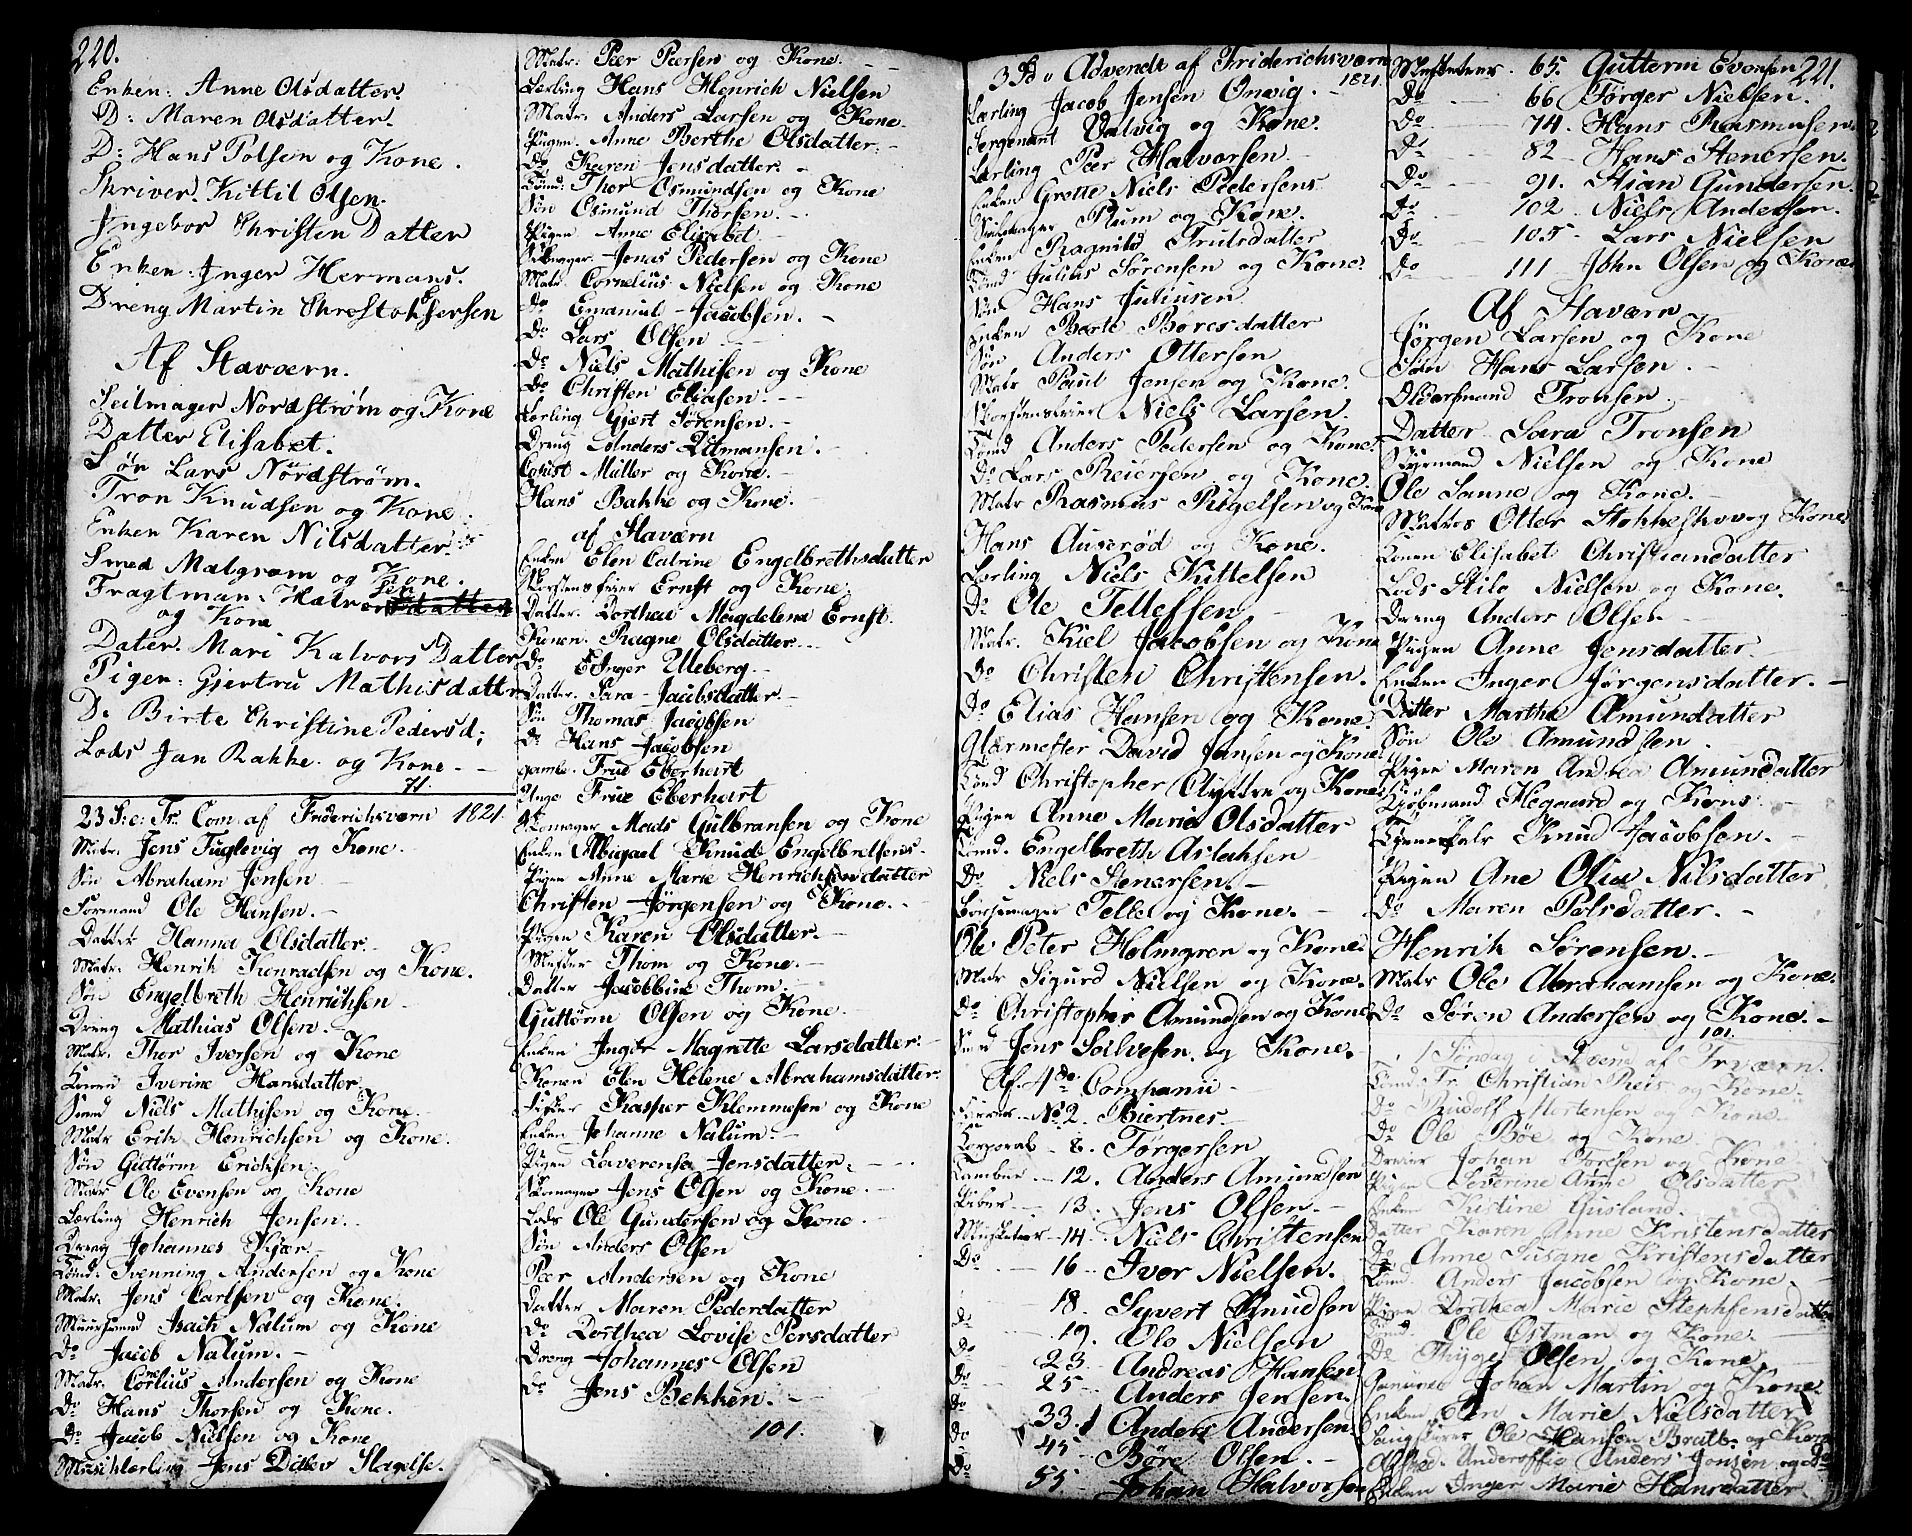 220.
Enken: Anne Olsdatter.
D: Maren Olsdatter.
D: Hans Polsen og Kone.
Skriver. Kittil Olsen.
Ingebor Christen Datter
Enken: Inger Hermans.
Dreng Martin Chrestoffersen
Af Staværn.
Seilmager Nordstrøm og Kone
Datter Elisabet.
Søn Lars Nordstrøm.
Tron Knudsen og Kone.
Enken Karen Nilsdatter.
Smed Malgram og Kone.
Fragtman. Halvor
og Kone
Dater. Mari Halvors Datter
Pigen: Gjertru Mathisdatter
D. Birte Christine Pedersd;
Lods Jan Bakke. og Kone.
71.
23 S: e: Tr. Com af Friderichsværn 1821
Matr. Jens Fuglevig og Kone.
Søn Abraham Jensen
Formand Ole Hansen.
Datter Hanna Olsdatter.
Matr. Henrik Konradsen og Kone.
Søn Engelbreth Henrichsen
Dreng Mathias Olsen.
Matr. Thor Iversen og Kone
Konen Iverine Hansdatter.
Smed Niels Mathisen og Kone.
Matr Erik Henrichsen og Kone.
Søn Guttorm Ericksen.
Matr Ole Evensen og Kone
Lærling Henrich Jensen.
Dreng Johannes Kjær
Tømd. Svenning Andersen og Kone
Matr. Jens Carlsen og Kone.
Muurmand Isach Nalum og Kone
Do Jacob Nalum.
Matr. Cornelius Andersen og Kone
Do Hans Thorsen og Kone.
Do Jacob Nielsen og Kone
Musiklærling Jens Ditlev Slagelse.
Matr. Peer Peersen og Kone.
Lærling Hans Henrich Nielsen
Matr. Anders Larsen og Kone.
Pigen. Anne Berthe Olsdatter.
Do Karen Jensdatter.
Tømd. Thor Osmundsen og Kone
Søn Osmund Thorsen.
Pigen Anne Elisabet
Jonas Pedersen og Kone
Matr. Cornelius Nielsen og Kone
Do Emanuel Jacobsen.
Do Lars Olsen
Do Niels Mathisen og Kone
Do Christen Eliasen.
Lærling Gjert Sørensen.
Dreng Anders Ditmansen.
Müller og Kone.
Hans Bakke og Kone.
af Staværn
Enken Elen Catrine Engelbrethsdatter
Skorstensfeier Ernst og Kone.
Datter. Dorthea Magdelena Ernst.
Konen. Ragne Olsdatter.
Do Inger Uleberg
Datter. Sara Jacobsdatter.
Søn Thomas Jacobsen
Do Hans Jacobsen
gamle. Frue Eberhart
Unge Frue Eberhart
Skomager Mads Gulbransen og Kone
Enken Abigael Knud Engelbretsens.
Pigen Anne Marie Henrichsendatter
Christen Jørgensen og Kone.
Pigen Karen Olsdatter.
Thom og Kone.
Datter Jacobbine Thom.
Guttorm Olsen og Kone.
Enken Inger Magrette Larsdatter.
Konen Elen Helene Abrahamsdatter.
Fisker Kasper Klemmesen og Kone
Enken Johanne Nalum.
Pigen Laverensa Jensdatter.
Skomager Jens Olsen og Kone.
Lods Ole Gundersen og Kone.
Søn Anders Olsen
Peer Andersen og Kone
Datter Maren Pederdatter
Do Dorthea Lovise Persdatter
Dreng Johannes Olsen
Do Jens Bekken.
101.
3 S. Advendt af Friderichsværn 1821.
Lærling Jacob Jensen Onvig.
Sergeant Valvig og Kone.
Lærling Peer Halvorsen.
Enken Grette Niels Pedersens
Seilmager Plum og Kone.
Enken Ragnild Trulsdatter
Tømd Julius Sørensen og Kone.
Søn Hans Juliusen
Enken Berte Børesdatter
Søn Anders Ottersen
Matr Paul Jensen og Kone.
Skorstensfeier Niels Larsen.
Tømd Anders Pedersen og Kone.
Do Lars Reiersen og Kone.
Matr Rasmus Rigelsen og Kone
Hans Auserød og Kone.
Lærling Niels Kittelsen
Do Ole Tellefsen
Matr. Kiel Jacobsen og Kone
Do Christen Christensen.
Do Elias Hansen og Kone.
Glarmester David Jansen og Kone.
Tømd Christopher og Kone.
Pigen Anne Marie Olsdatter
Tømd. Engelbreth Aslaksen
Do Niels Stenersen.
Børsemager Telle og Kone.
Ole Peter Holmgren og Kone.
Matr Sigurd Nielsen og Kone.
Do Christopher Amundsen og Kone.
Smed Jens Solvesen og Kone.
Af. 4de Compani
No 2. Biertnes.
Corporal 8. Törgersen
Tambur 12. Anders Amundsen
Piber 13. Jens Olsen.
Musketeer 14. Niels Christensen
Do 16 Iver Nielsen.
18. Syvert Knudsen
Do 19. Ole Nielsen
Do 23. Andreas Hansen
Do 25 Anders Jensen.
Do 33. Anders Andersen.
Do 45 Børe Olsen.
Do 55 Johan Halvorsen
Musketeer 65. Guttorm Evensen 221.
Do 66 Törger Nielsen.
Do 74. Hans Rasmusen.
Do 82 Hans Stenersen.
Do 91. Stian Gundersen.
Do 102. Niels Andersen.
Do 105. Lars Nielsen
Do 111 John Olsen og Kone.
Af Staværn
Jørgen Larsen og Kone
Søn Hans Larsen.
Oldermand Tronsen.
Datter Sara Tronsen
Styrmand Nielsen og Kone
Ole Sanne og Kone.
Matros Otter Stokkeskov og Kone
Konen Elisabet Christiandatter
Lods Stilo Nielsen og Kone.
Dreng Anders Olsen
Pigen Anne Jensdatter.
Enken Inger Jørgensdatter.
Datter Marthe Amundatter
Søn Ole Amundsen
Pigen Maren Andrea Amundatter
Kjøbmand Hegaard og Kone.
Knud Jacobsen.
Pigen Ane Olia Nilsdatter
Do Maren Polsdatter.
Henrik Sørensen.
Matr Ole Abrahamsen og Kone.
Do Søren Andersen og Kone.
101.
1 Søndag i Advend af Frværn.
Tømd. Fr. Christian Reis og Kone.
Do Rudolf Mortensen og Kone.
Do Ole Bøe og Kone.
Dreier Johan Torsen og Kone
Pigen Severine Anne Olsdatter
Enken Kistine Gusland.
Datter Karen Anne Kristensdatter
Do Anne Susane Kristensdatter
Tømd. Anders Jacobsen og Kone.
Pigen Dorthea Marie Stephensdatter
Tømd. Ole Ostman og Kone.
Do Thyge Olsen og Kone.
Johan Martin og Kone.
Enken Elen Marie Nielsdatter
Ole Hansen Bratt og Kone
Afsked. Underoffic Anders Jonsen og Do
Enken Inger Marie Hansdatter.